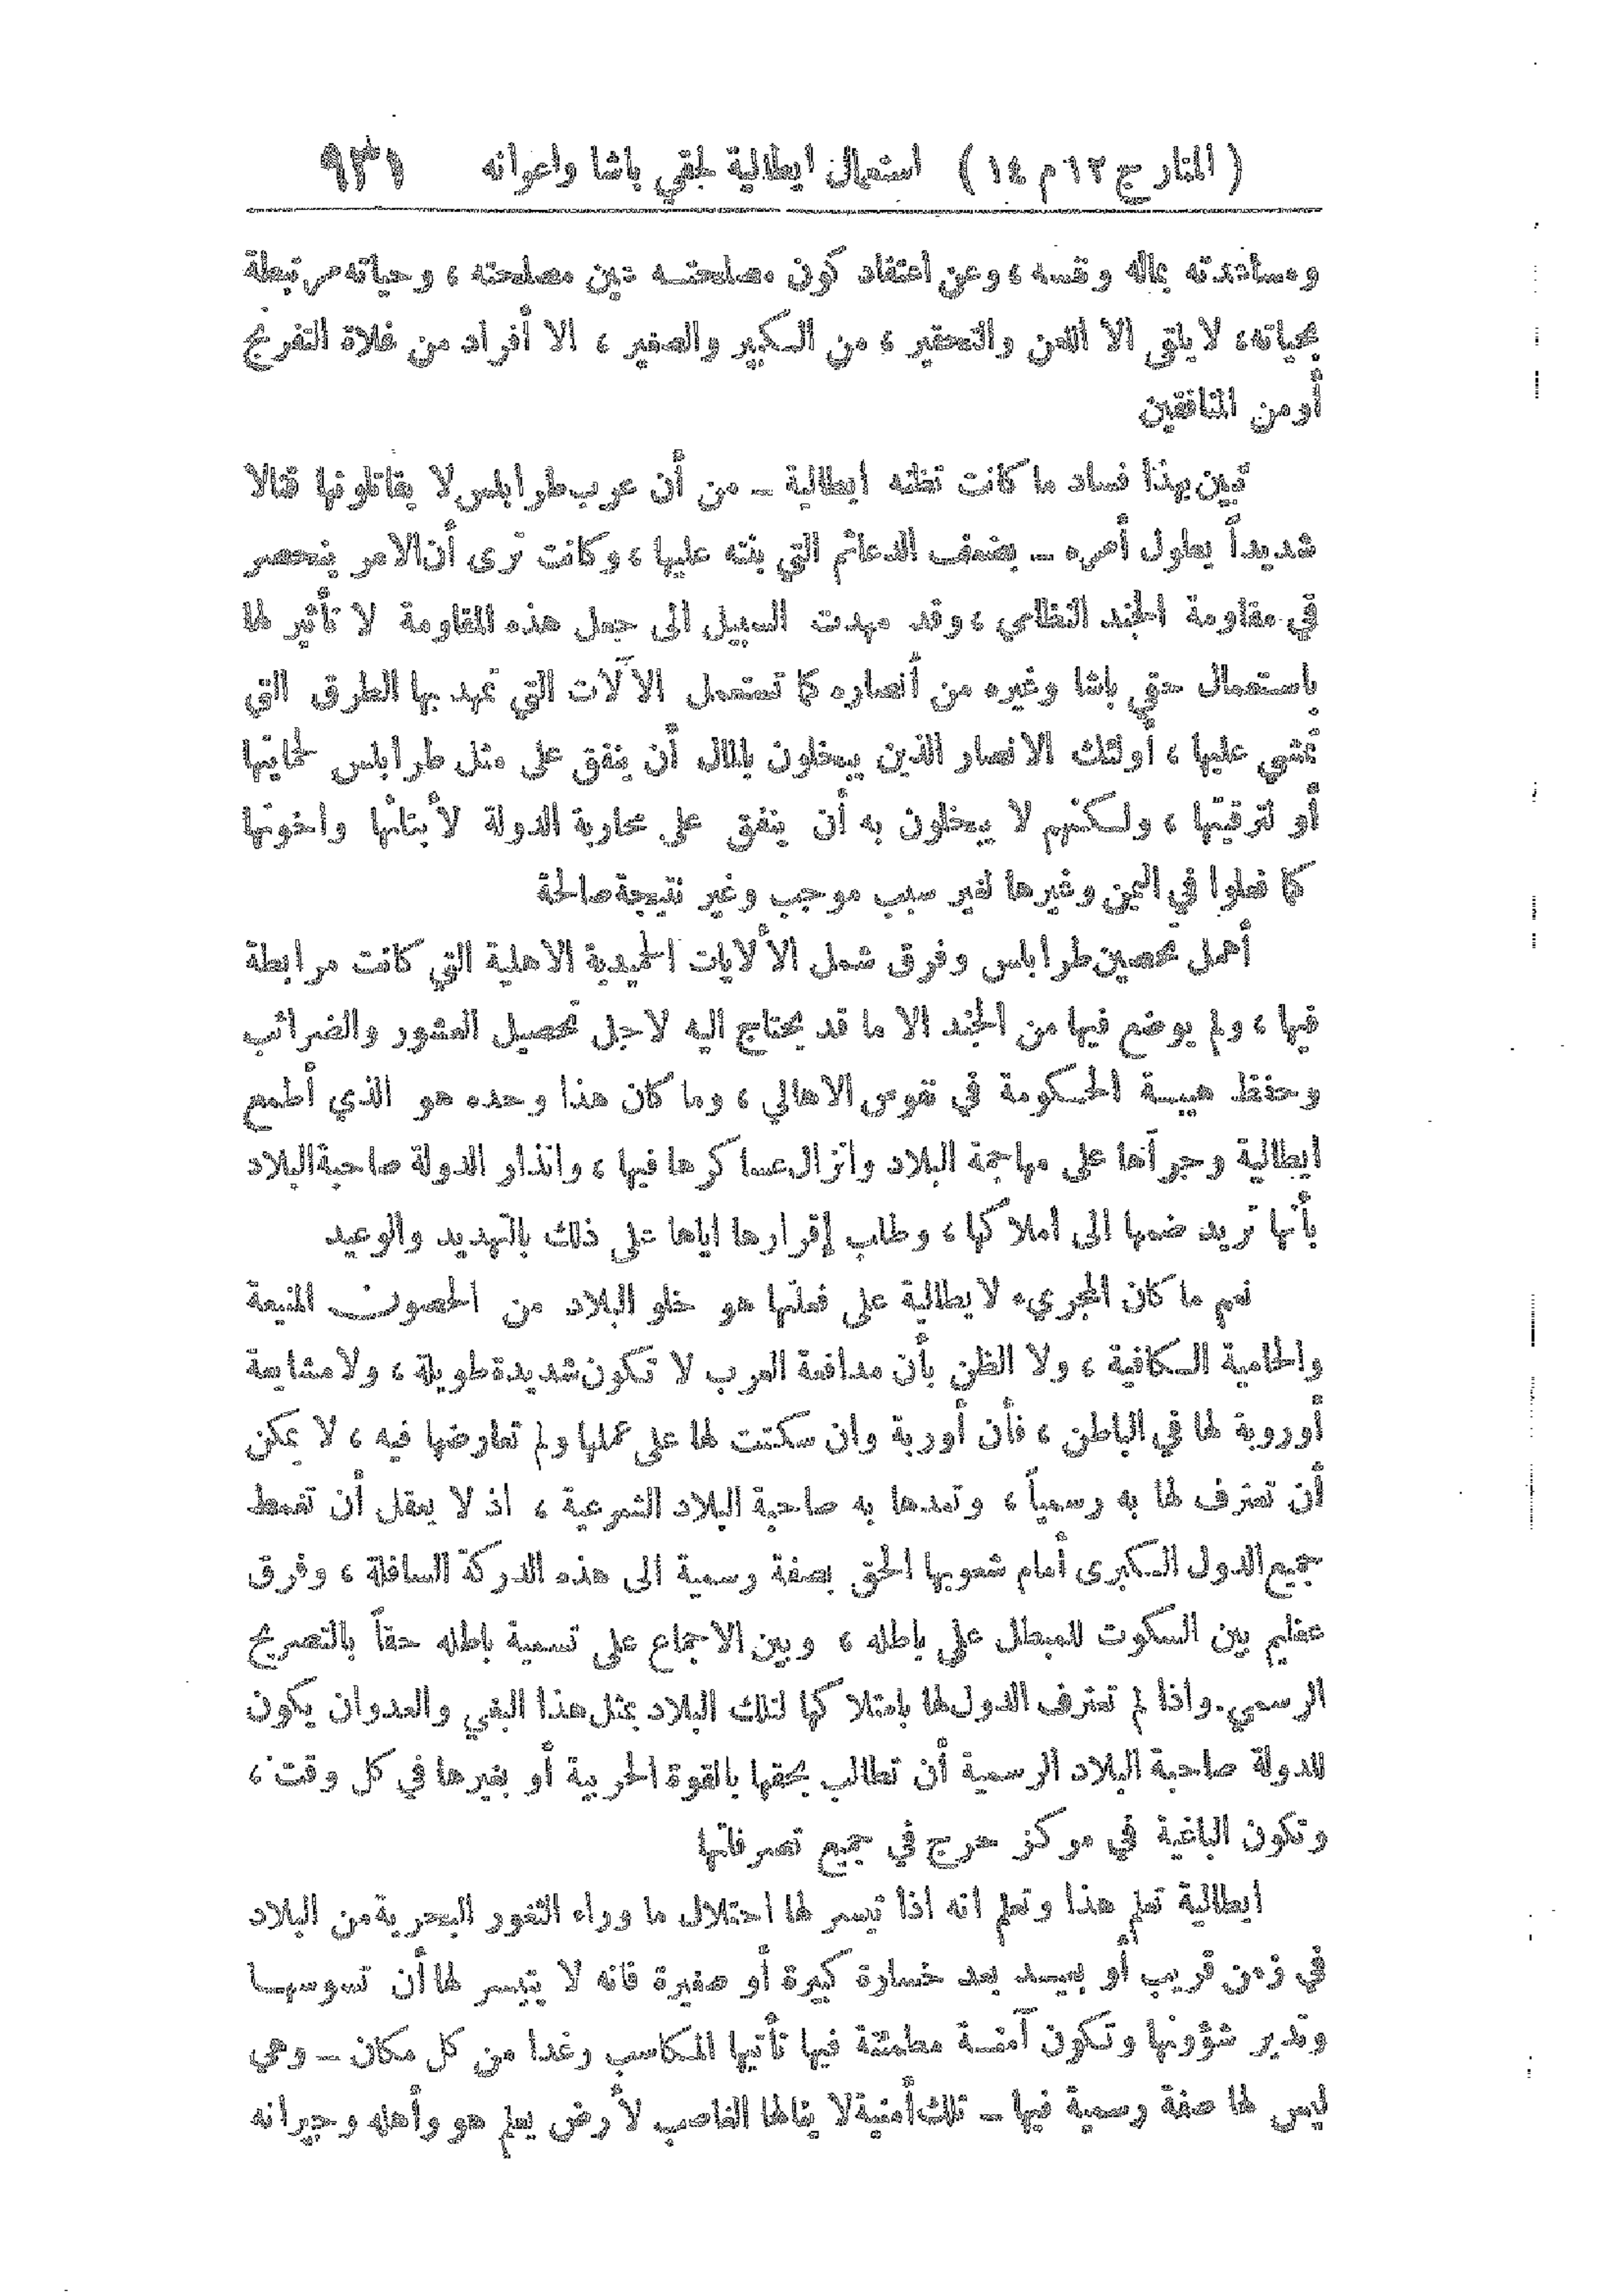 ( المنار ج ١٢ م ١٤ ) استعمال ايطالية لحقي باشا واعوانه ٩٣١
ومساعدته بماله ونفسه ، وعن اعتقاد كون مصلحتـه عين مصلحته ، وحياته مرتبطة
بحياته ، لا يلقى الا اللعن والتحقير ، من الكبير والصغير ، الا أفراد من غلاة التفرنج
أو من المنافقين
تبين بهذا فساد ما كانت تظنه ايطالية ــ من أن عرب طرابلس لا يقاتلونها قتالا
شديداً يطول أمره ــ بضعف الدعائم التي بنته عليها ، وكانت ترى أن الامر ينحصر
في مقاومة الجند النظامي ، وقد مهدت السبيل الى جعل هذه المقاومة لا تأثير لها
باستعمال حقي باشا وغيره من أنصاره كما تستعمل الآلات التي تمهد بها الطرق التي
تمشي عليها ، أولئك الانصار الذين يبخلون بالمال أن ينفق على مثل طرابلس لحمايتها
أو لترقيتها ، ولكنهم لا يبخلون به أن ينفق على محاربة الدولة لأبنائها واخوتها
كما فعلوا في اليمن وغيرها لغير سبب موجب وغير نتيجة صالحة
أهمل تحصين طرابلس وفرق شمل الألايات الحميدية الاهلية التي كانت مرابطة
فيها ، ولم يوضع فيها من الجند الا ما قد يحتاج اليه لاجل تحصيل العشور والضرائب
وحفظ هيبـة الحكومة في نفوس الاهالي ، وما كان هذا وحده هو الذي أطمع
ايطالية وجرأها على مهاجمة البلاد وانزال عساكرها فيها ، وانذار الدولة صاحبة البلاد
بأنها تريد ضمها الى املاكها ، وطلب إقرارها اياها على ذلك بالتهديد والوعيد
نعم ما كان المجرىء لايطالية على فعلتها هو خلو البلاد من الحصون المنيعة
والحامية الكافية ، ولا الظن بأن مدافعة العرب لا تكون شديدة طويلة ، ولا مشايعة
أوروبة لها في الباطن ، فأن أوربة وان سكتت لها على عملها ولم تعارضها فيه ، لا يمكن
أن تعترف لها به رسمياً ، وتعدها به صاحبة البلاد الشرعية ، اذ لا يعقل أن تغمط
جميع الدول الكبرى أمام شعوبها الحق بصفة رسمية الى هذه الدركة السافلة ، وفرق
عظيم بين السكوت للمبطل على باطله ، وبين الاجماع على تسمية باطله حقاً بالتصريح
الرسمي . واذا لم تعترف الدول لها بامتلاكها لتلك البلاد بمثل هذا البغي والعدوان يكون
للدولة صاحبة البلاد الرسمية أن تطالب بحقها بالقوة الحربية أو بغيرها في كل وقت ،
وتكون الباغية في مركز حرج في جميع تصرفاتها
ايطالية تعلم هذا وتعلم انه اذا تيسر لها احتلال ما وراء الثغور البحرية من البلاد
في زمن قريب أو بعيـد بعد خسارة كبيرة أو صغيرة فانه لا يتيسر لها أن تسوسهـا
وتدير شؤونها وتكون آمنـة مطمئنة فيها تأتيها المكاسب رغدا من كل مكان ــ وهي
ليس لها صفة رسمية فيها ــ تلك أمنية لا ينالها الغاصب لأرض يعلم هو وأهله وجيرانه